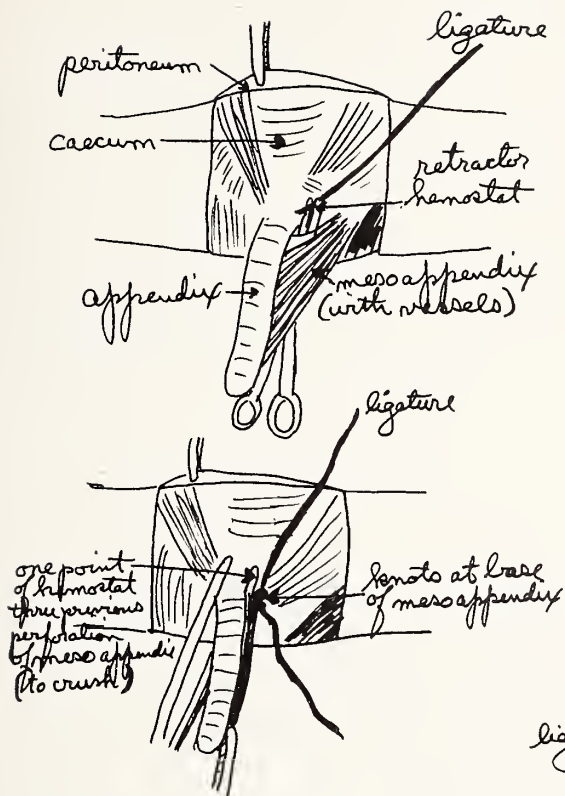 ligature
peritoneum
caecum
retractor
hemostat
appendix
mesoappendix
(with vessels)
ligature
one point
of hemostat
thru previous
perforation
of mesoappendix
(to crush)
knots at base
of mesoappendix
lig